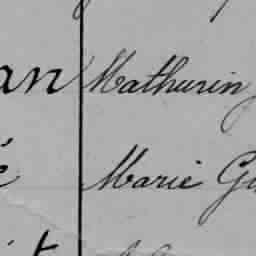 an Mathurin
é Marie Gu